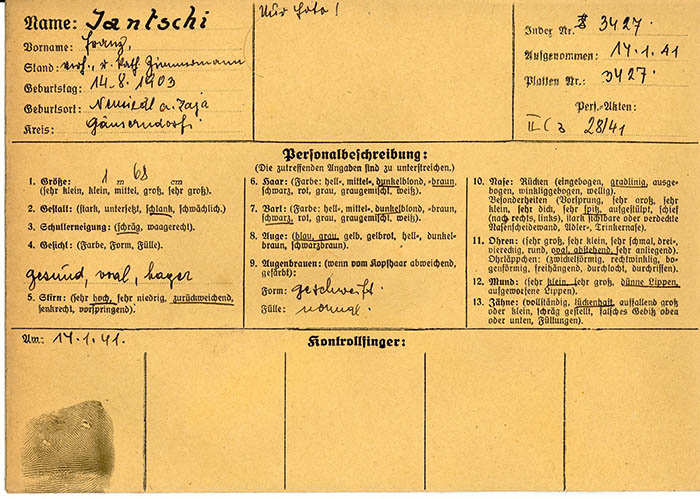 Name: Jantschi
Vorname: Franz,
Stand: verh., r. kath. Zimmermann
Geburtstag: 14.8.1903
Geburtsort: Neusiedl a. Zaja
Kreis: Gänserndorf
Nur Foto!
Index Nr. 3427.
Aufgenommen: 17.1.41
Platten Nr.: 3427.
Pers.-Akten:
II C 3 28/41
Personalbeschreibung:
(Die zutreffenden Angaben sind zu unterstreichen.)
1. Größe: 1 m 68 cm
(sehr klein, klein, mittel, groß, sehr groß).
2. Gestalt: (stark, untersetzt, schlank, schwächlich).
3. Schulterneigung: (schräg, waagerecht).
4. Gesicht: (Farbe, Form, Fülle).
gesund, oval, hager
5. Stirn: (sehr hoch, sehr niedrig, zurückweichend,
senkrecht, vorspringend).
6. Haar: (Farbe: hell-, mittel-, dunkelblond, -braun,
schwarz, rot, grau, graugemischt, weiß).
7. Bart: (Farbe: hell-, mittel-, dunkelblond, -braun,
schwarz, rot, grau, graugemischt, weiß).
8. Auge: (blau, grau, gelb, gelbrot, hell-, dunkel-
braun, schwarzbraun).
9. Augenbrauen: (wenn vom Kopfhaar abweichend,
gefärbt):
Form: geschweift.
Fülle: normal.
10. Nase: Rücken (eingebogen, gradlinig, ausge-
bogen, winkliggebogen, wellig).
Besonderheiten (Vorsprung, sehr groß, sehr
klein, sehr dick, sehr spitz, aufgestülpt, schief
(nach rechts, links), stark sichtbare oder verdeckte
Nasenscheidewand, Adler-, Trinkernase).
11. Ohren: (sehr groß, sehr klein, sehr schmal, drei-
viereckig, rund, oval, abstehend, sehr anliegend).
Ohrläppchen: (zwickelförmig, rechtwinklig, bo-
genförmig, freihängend, durchlocht, durchrissen).
12. Mund: (sehr klein, sehr groß, dünne Lippen,
aufgeworfene Lippen).
13. Zähne: (vollständig, lückenhaft, auffallend groß
oder klein, schräg gestellt, falsches Gebiß oben
oder unten, Füllungen).
Am: 17.1.41.
Kontrollfinger: